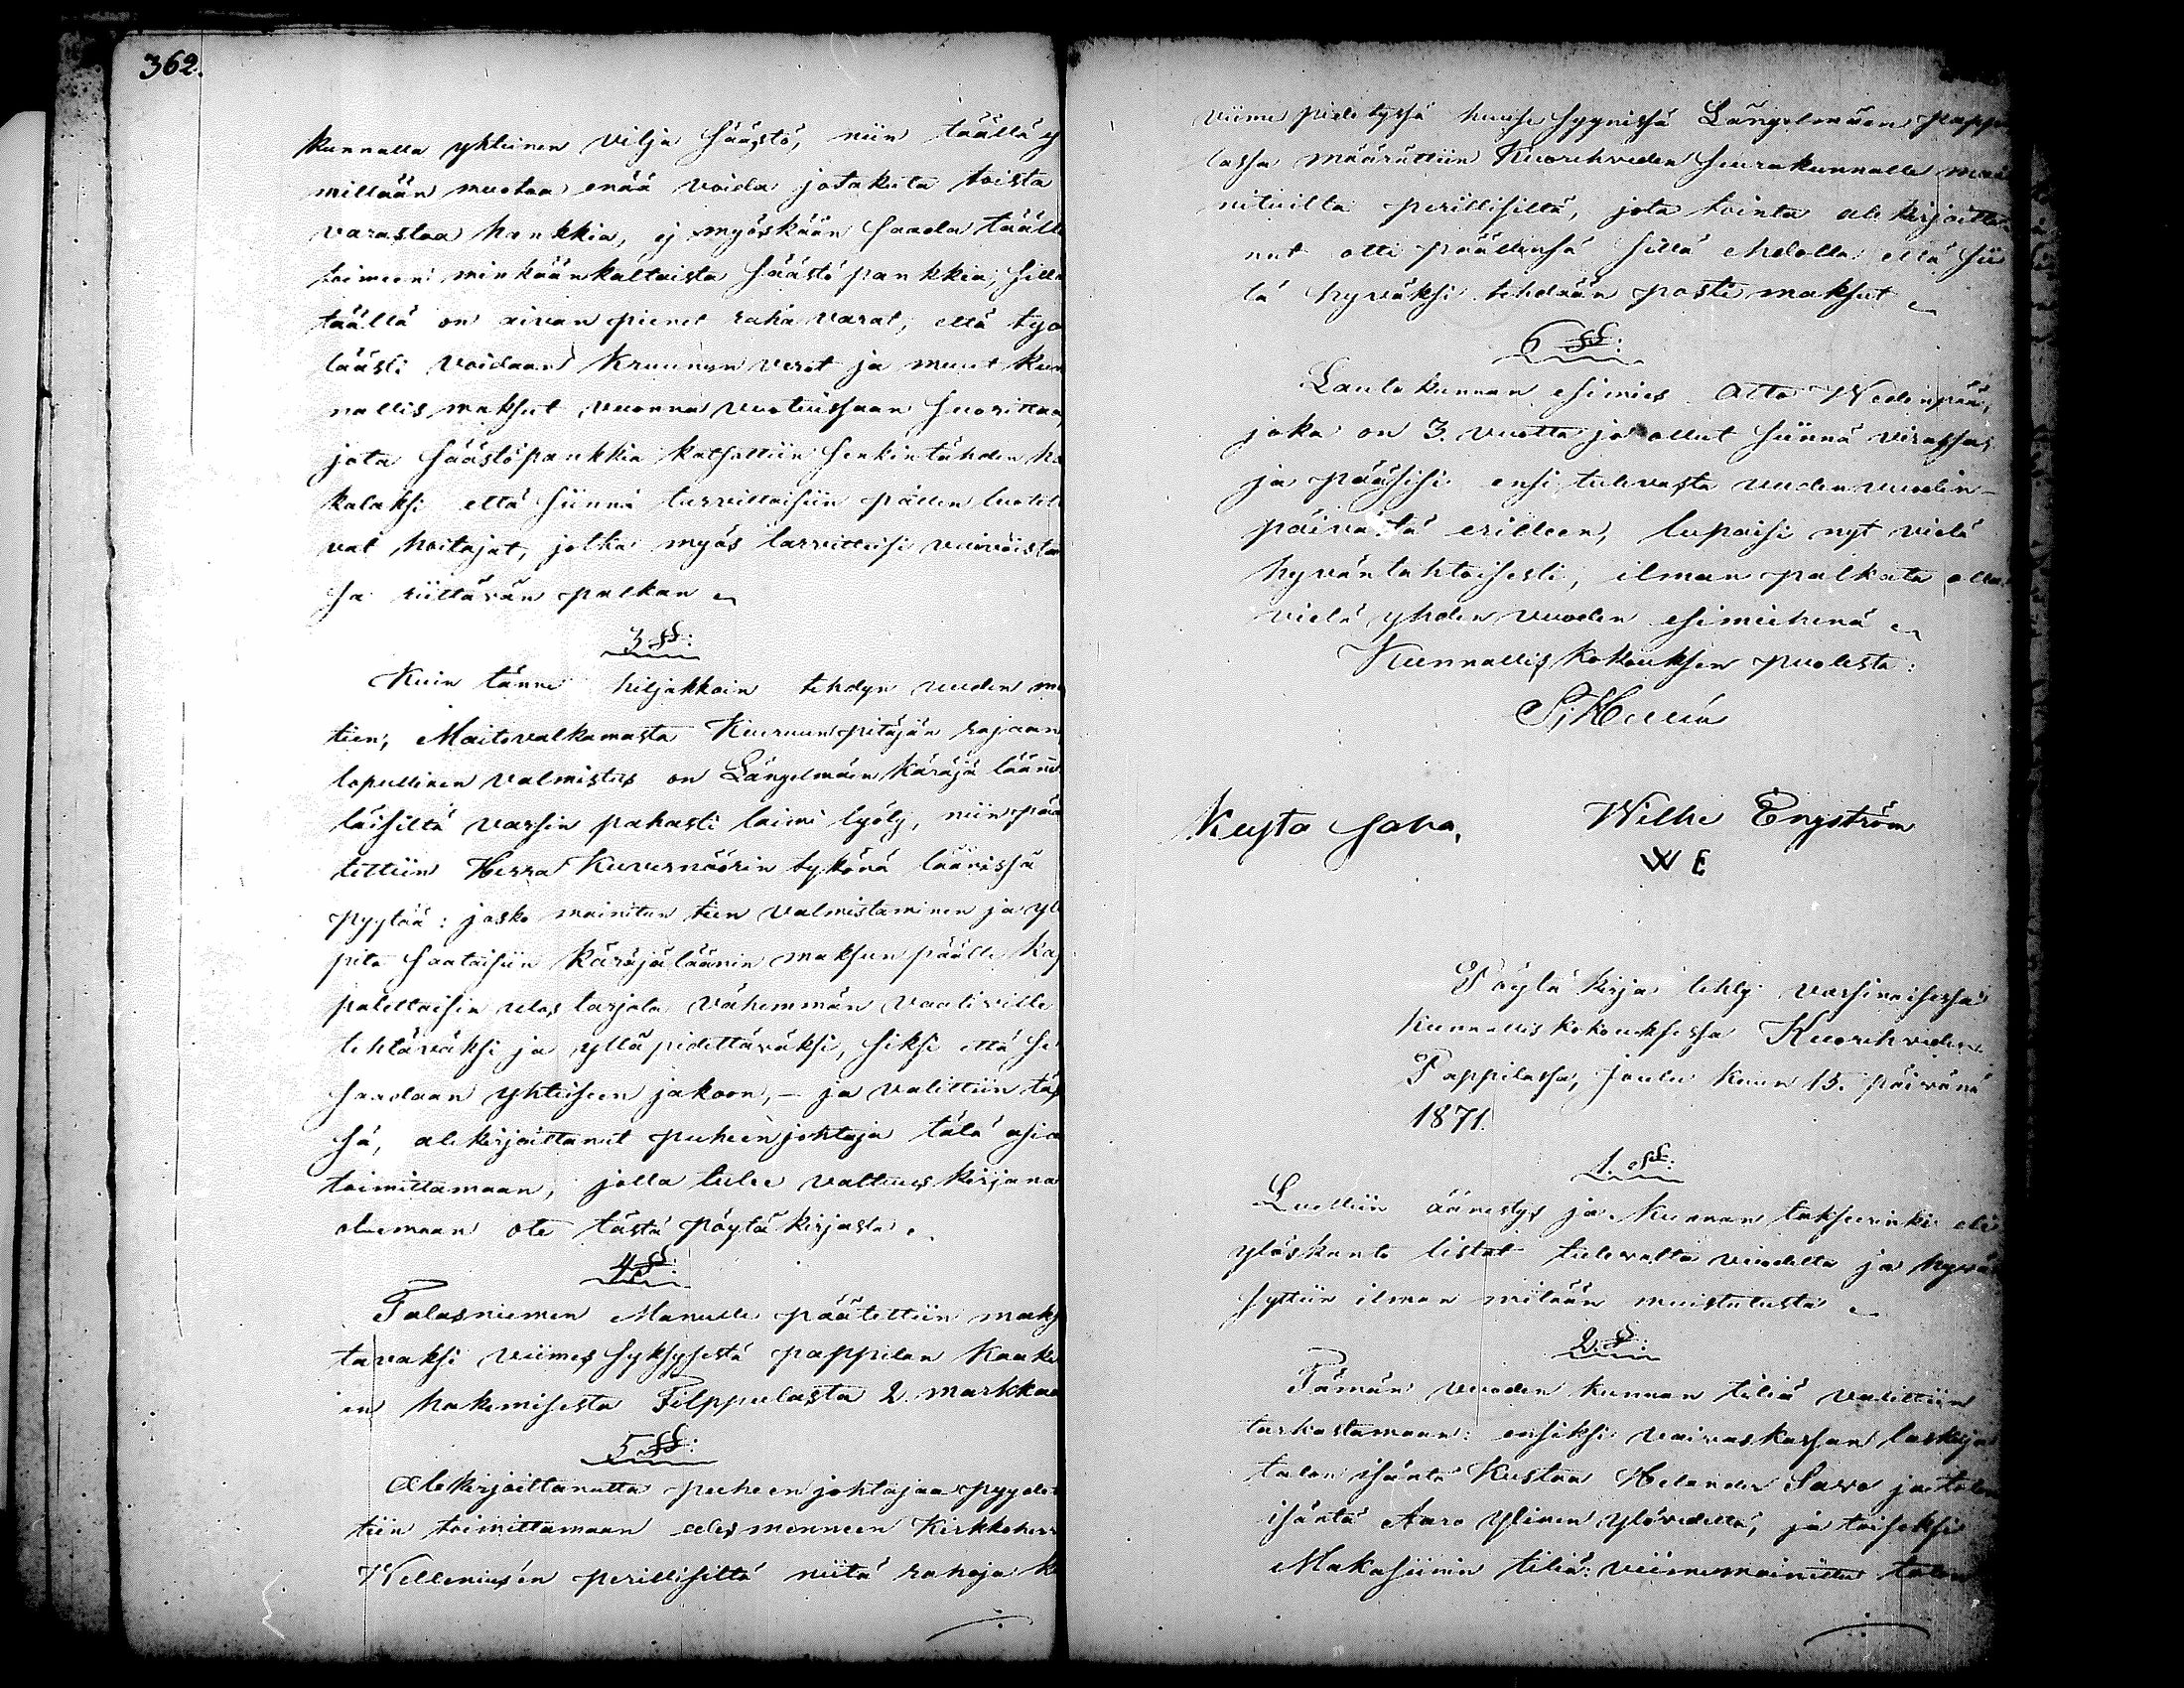 362.
kunnalla yhteinen vilja säästö, niin täällä ej
millään muotoa enää voida jotakuta toista
varastoa hankkia, ej myöskään saada tääll
toimeen minkäänkaltaista säästöpankkia, sillä
täällä on aivan pienet raha varat, että työ
läästi voidaan Kruunun verot ja muut kun
nallis maksut vuonna vuotuissaan suorittaa,
jota säästöpankkia katsottiin senkintähden ha
kalaksi että siinnä tarvittaisiin pällen luotet
vat hoitajat, jotka myös tarvitteisi vaivoista
sa riittävän palkan
3 §§:
Kuin tänne hiljakkoin tehdyn uuden ma
tien, Maitovalkamasta Keuruun pitäjän rajaan
lopullinen valmistus on Längelmäen Käräjä lääni
läisiltä varsin pahasti laimi lyöty, niin pää
tettiin Herra Kuvernöörin tykönä läänissä
pyytää: josko mainitun tien valmistaminen ja yl
pito saataisiin Käräjäläänin maksun päälle kap
palettaisin ulos tarjota vähemmän vaativille
tehtäväksi ja ylläpidettäväksi, siksi että se
saadaan yhteiseen jakoon, – ja valittiin täs
sä, alekirjoittanut puheenjohtaja tälä asia
toimittamaan, jolla tulee valtuus kirjana
olemaan ote tästä pöytäkirjasta
4 §:
Talasniemen Manulle päätettiin maks
tavaksi viimes syksysestä pappilan Kaake
in hakemisesta Filppulasta 2. markkaa
5 §§:
Alekirjoittanutta puheenjohtajaa pyydet
tiin toimittamaan edesmenneen Kirkkoherr
Wellenius'en perillisiltä niitä rahoja k
viime pidetyssä huuse syynissä Längelmäen pappi
lassa määrättiin Kuorehveden seurakunnalle mai
nituilta perillisiltä, jota tointa alekirjoitta
nut otti päällensä sillä ehdolla että sii
tä hyväksi tehdään posti maksut
6 §§:
Lautakunnan esimies Otto Wedenpää,
joka on 3. vuotta jo ollut siinnä virassas
ja pääsisi ensi tulevasta uuden vuoden-
päivästä erilleen, lupaisi nyt vielä
hyväntahtoisesti, ilman palkata olla
vielä yhden vuoden esimiehenä
Kunnallis Kokouksen puolesta:
Kusta Sava,
Wilhe Engström
W E
Pöytä kirja tehty varsinaisessa
Kunnallis kokouksessa Kuorehveden
Pappilassa, Joulu kuun 15. päivänä
1871.
1. §§:
Luettiin äänestys ja Kunnan takseerinki eli
yläskanto listat tulevalta vuodelta ja hyväk
syttiin ilman mitään muistutusta
2. §:
Tämän vuoden kunnan tiliä valittiin
tarkastamaan: ensiksi vaivaskassan laskuja
talon isäntä Kustaa Helander Sava ja talon
isäntä Aaro Ylinen Ylövedeltä, ja toiseksi
Makasiinin tiliä: viimemainittu talon